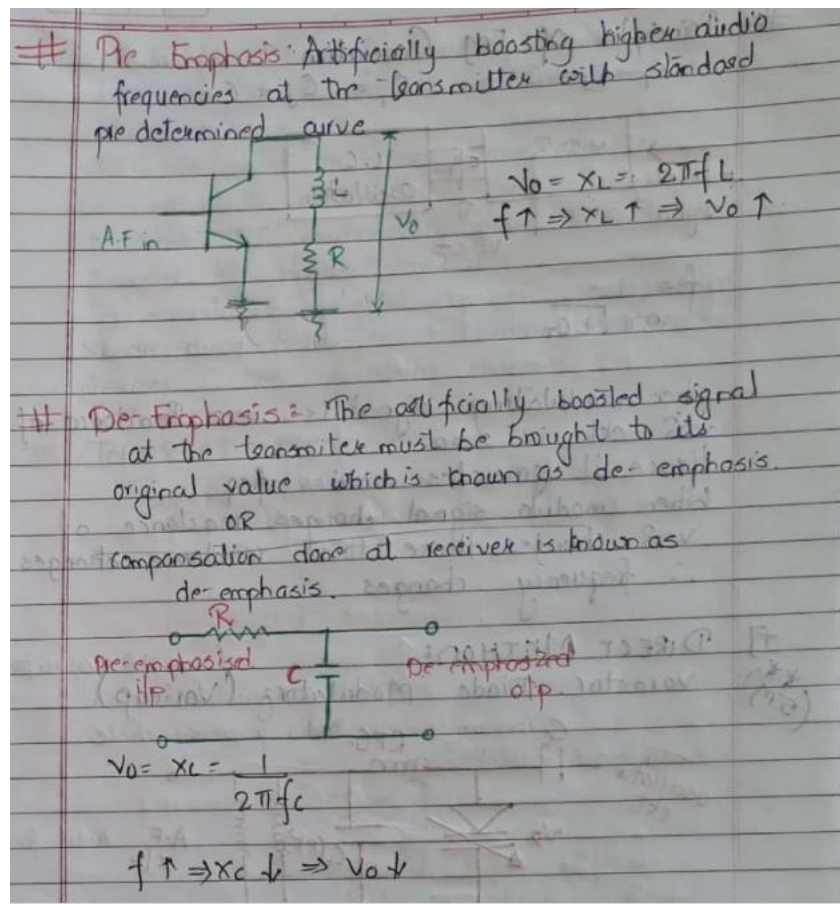 # Pre Emphasis: Artificially boosting higher audio
frequencies at the transmitter with standard
pre determined curve
A.F in
L
R
Vo
Vo = XL = 2πfL
f↑ ⇒ XL ↑ ⇒ Vo ↑
# De-Emphasis: The artificially boosted signal
at the transmiter must be brought to its
original value which is known as de-emphasis.
OR
compansation done at receiver is known as
de-emphasis.
R
Pre-emphasised
i/p
C
De emphasized
o/p.
Vo = Xc = 1
2πfc
f ↑ ⇒ Xc ↓ ⇒ Vo ↓